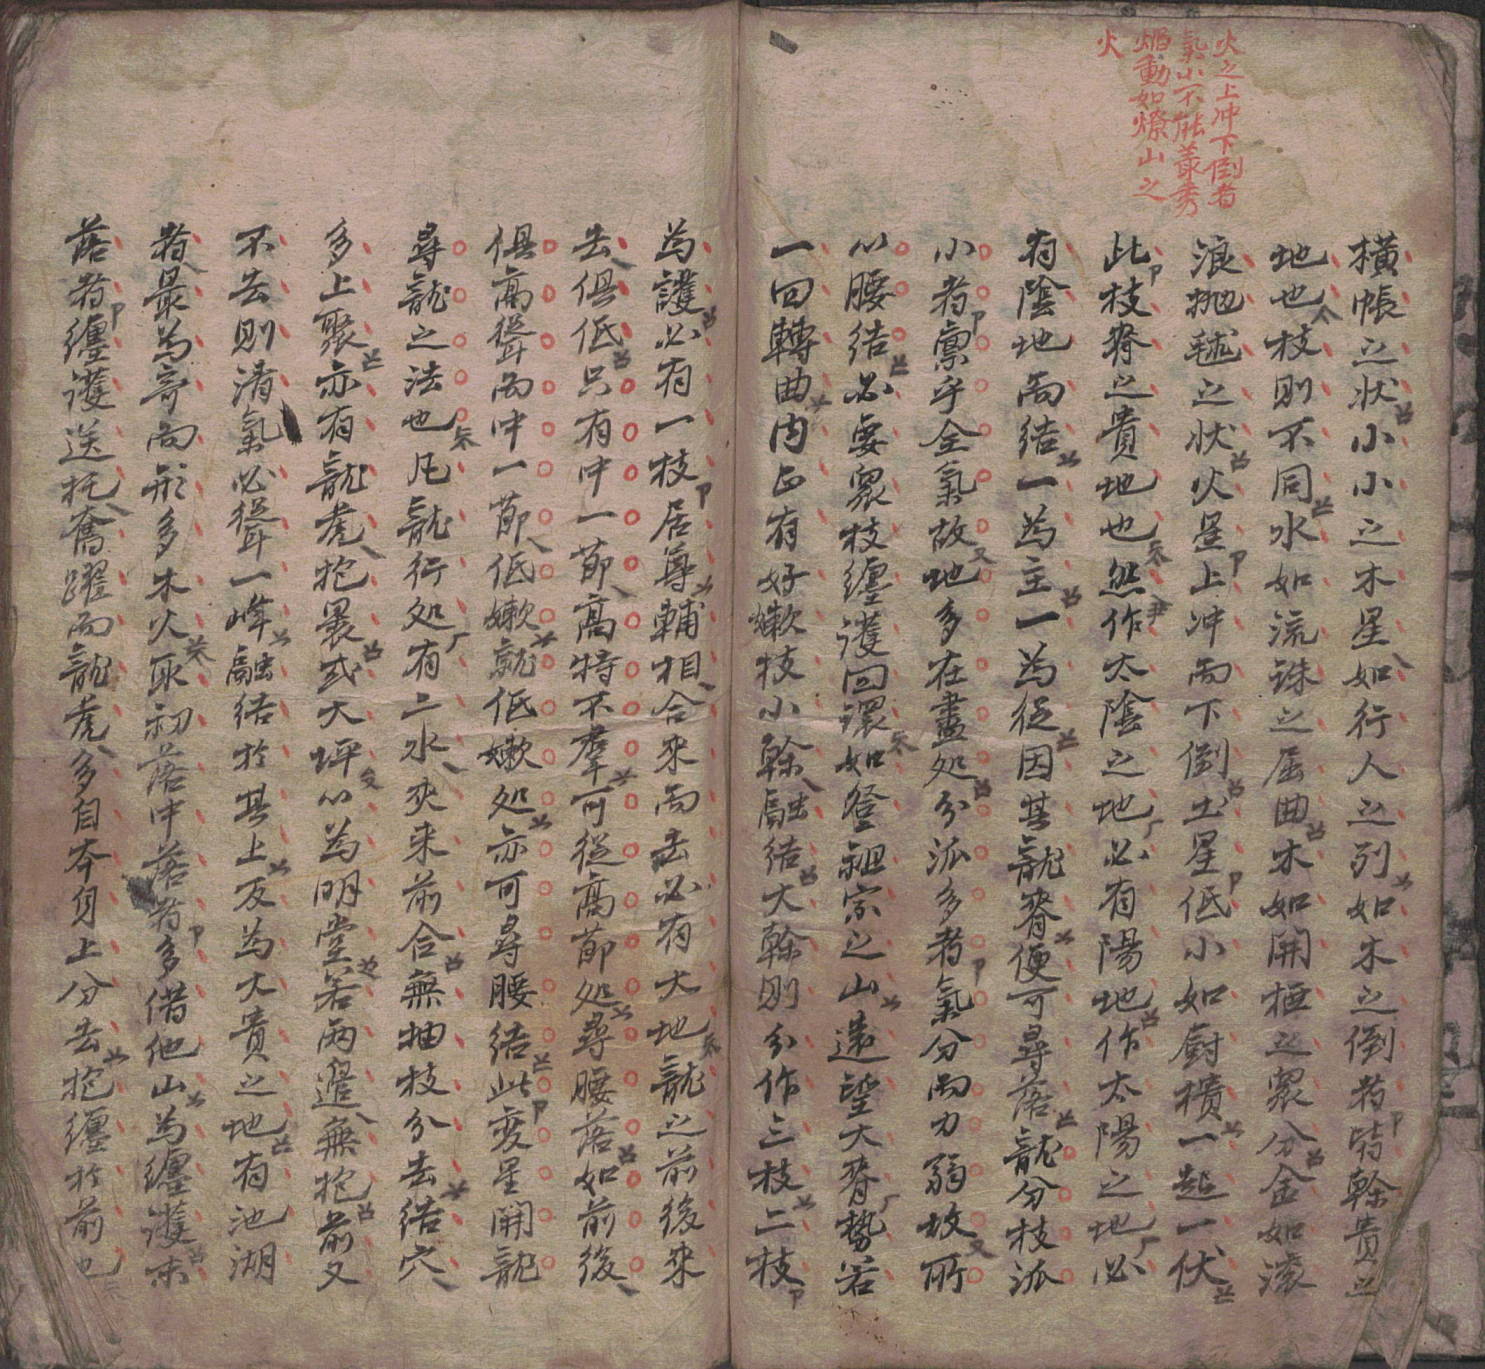 火之上冲下倒者
氣小不能叢秀
焰動如燎山之
火
橫帳之状小小之木星如行人之列如木之倒者皆幹貴之
地也枝則不同水如流珠之屈曲木如開極之裊分金如滚
浪抛毬之状火星上冲而下倒土星低小如廚樻一起一伏
此枝脊之貴地也然作太陰之地必有陽地作太陽之地必
有陰地而結一為主一為從因其龍脊便可尋落龍分枝派
小者禀乎全氣故地多在盡処分派多者氣分而力弱故所
以腰結必要裊枝纏護回環如登祖宗之山遠望大脊势若
一回轉曲内正有好嫩枝小幹融結大幹則分作三枝二枝
為護必有一枝居尊輔相合來而去必有大地龍之前後來
去俱低只有中一節高特不羣可從高節処尋腰落如前後
俱高聳而中一節低嫩就低嫩処亦可尋腰結此変星開龍
尋龍之法也凡龍行処有二水夾来前合無抽枝分去結穴
多上聚亦有龍虎抱裹或大坪以為明堂若兩邉無抱前又
不去則清氣必聳一峰融結於其上反為大貴之地有池湖
者最為奇而形多木火取初落中落者多借他山為纏護末
落者纏護送托奮躍而龍虎多自本身上分去抱纏於前也